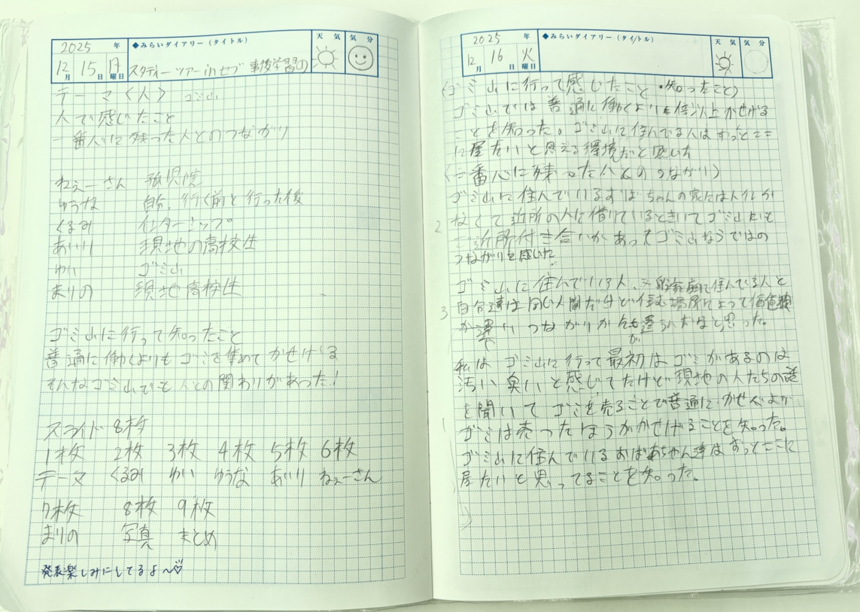 2025 年
◆みらいダイアリー(タイトル)
天 気 気 分
12月 15日 月曜日
スタディーツアー inセブ 事後学習の
テーマ〈人〉 ゴミ山
人で感じたこと
一番心に残った人とのつながり
ねぇーさん 孤児院
ゆうな 自分、行く前と行った後
くるみ インターンシップ
あいり 現地の高校生
ゆい ゴミ山
まりの 現地高校生
ゴミ山に行って知ったこと
普通に働くよりもゴミを集めてかせげる
そんなゴミ山でも人との関わりがあった!
スライド 8枚
1枚 2枚 3枚 4枚 5枚 6枚
テーマ くるみ ゆい ゆうな あいり ねぇーさん
7枚 8枚 9枚
まりの 写真 まとめ
発表楽しみにしてるよ〜♡
2025 年
◆みらいダイアリー(タイトル)
天 気 気 分
12月 16日 火曜日
(ゴミ山に行って感じたこと・知ったこと)
ゴミ山では普通に働くよりも倍以上かせげる
ことを知った。ゴミ山に住んでる人はずっとここ
に居たいと思える環境だと思いた
(一番心に残った人とのつながり)
ゴミ山に住んでいるおばあちゃんの家には
なくて近所の人に借りているときいてゴミ山でも
2
ご近所付き合いがあってゴミ山ならではの
つながりを感じた
ゴミ山に住んでいる人、一般家庭に住んでる人と
自分達は同じ人間だけど住む場所によって価値観
3
が違い つながりかたも違うんだなと思った。
が
私はゴミ山に行って最初はゴミがあるのは
汚い臭いと感じてたけど現地の人たちの話
を聞いて ゴミを売ることで普通にかせぐより
1
ゴミは売ったほうがかせげることを知った。
ゴミ山に住んでいるおばあちゃん達はずっとここに
居たいと思ってることを知った。